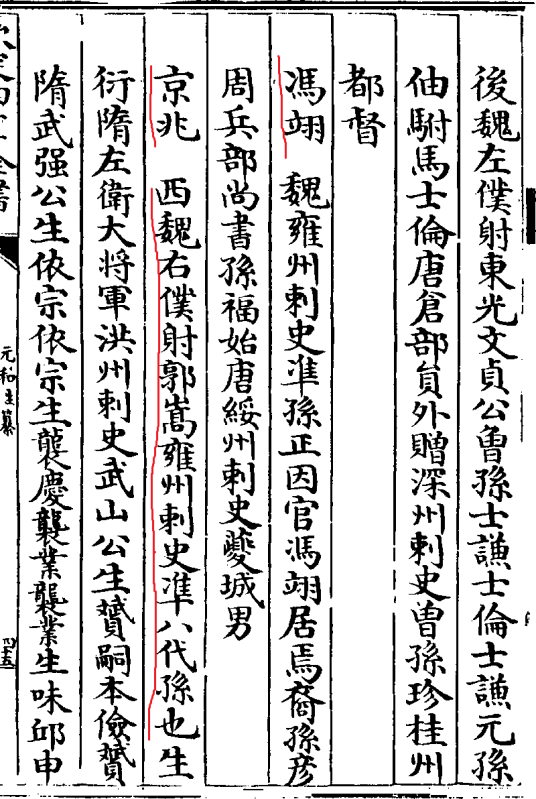 後魏左僕射東光文貞公曾孫士謙士倫士謙元孫
伷駙馬士倫唐倉部員外贈深州刺史曽孫珍桂州
都督
馮翊　魏雍州刺史準孫正因官馮翊居焉裔孫彦
周兵部尚書孫福始唐綏州刺史夔城男
京兆　西魏右僕射郭嵩雍州刺史準八代孫也生
衍隋左衛大将軍洪州刺史武山公生贇嗣本儉贇
隋武强公生依宗依宗生襲慶襲業襲業生味邱申
元和姓纂